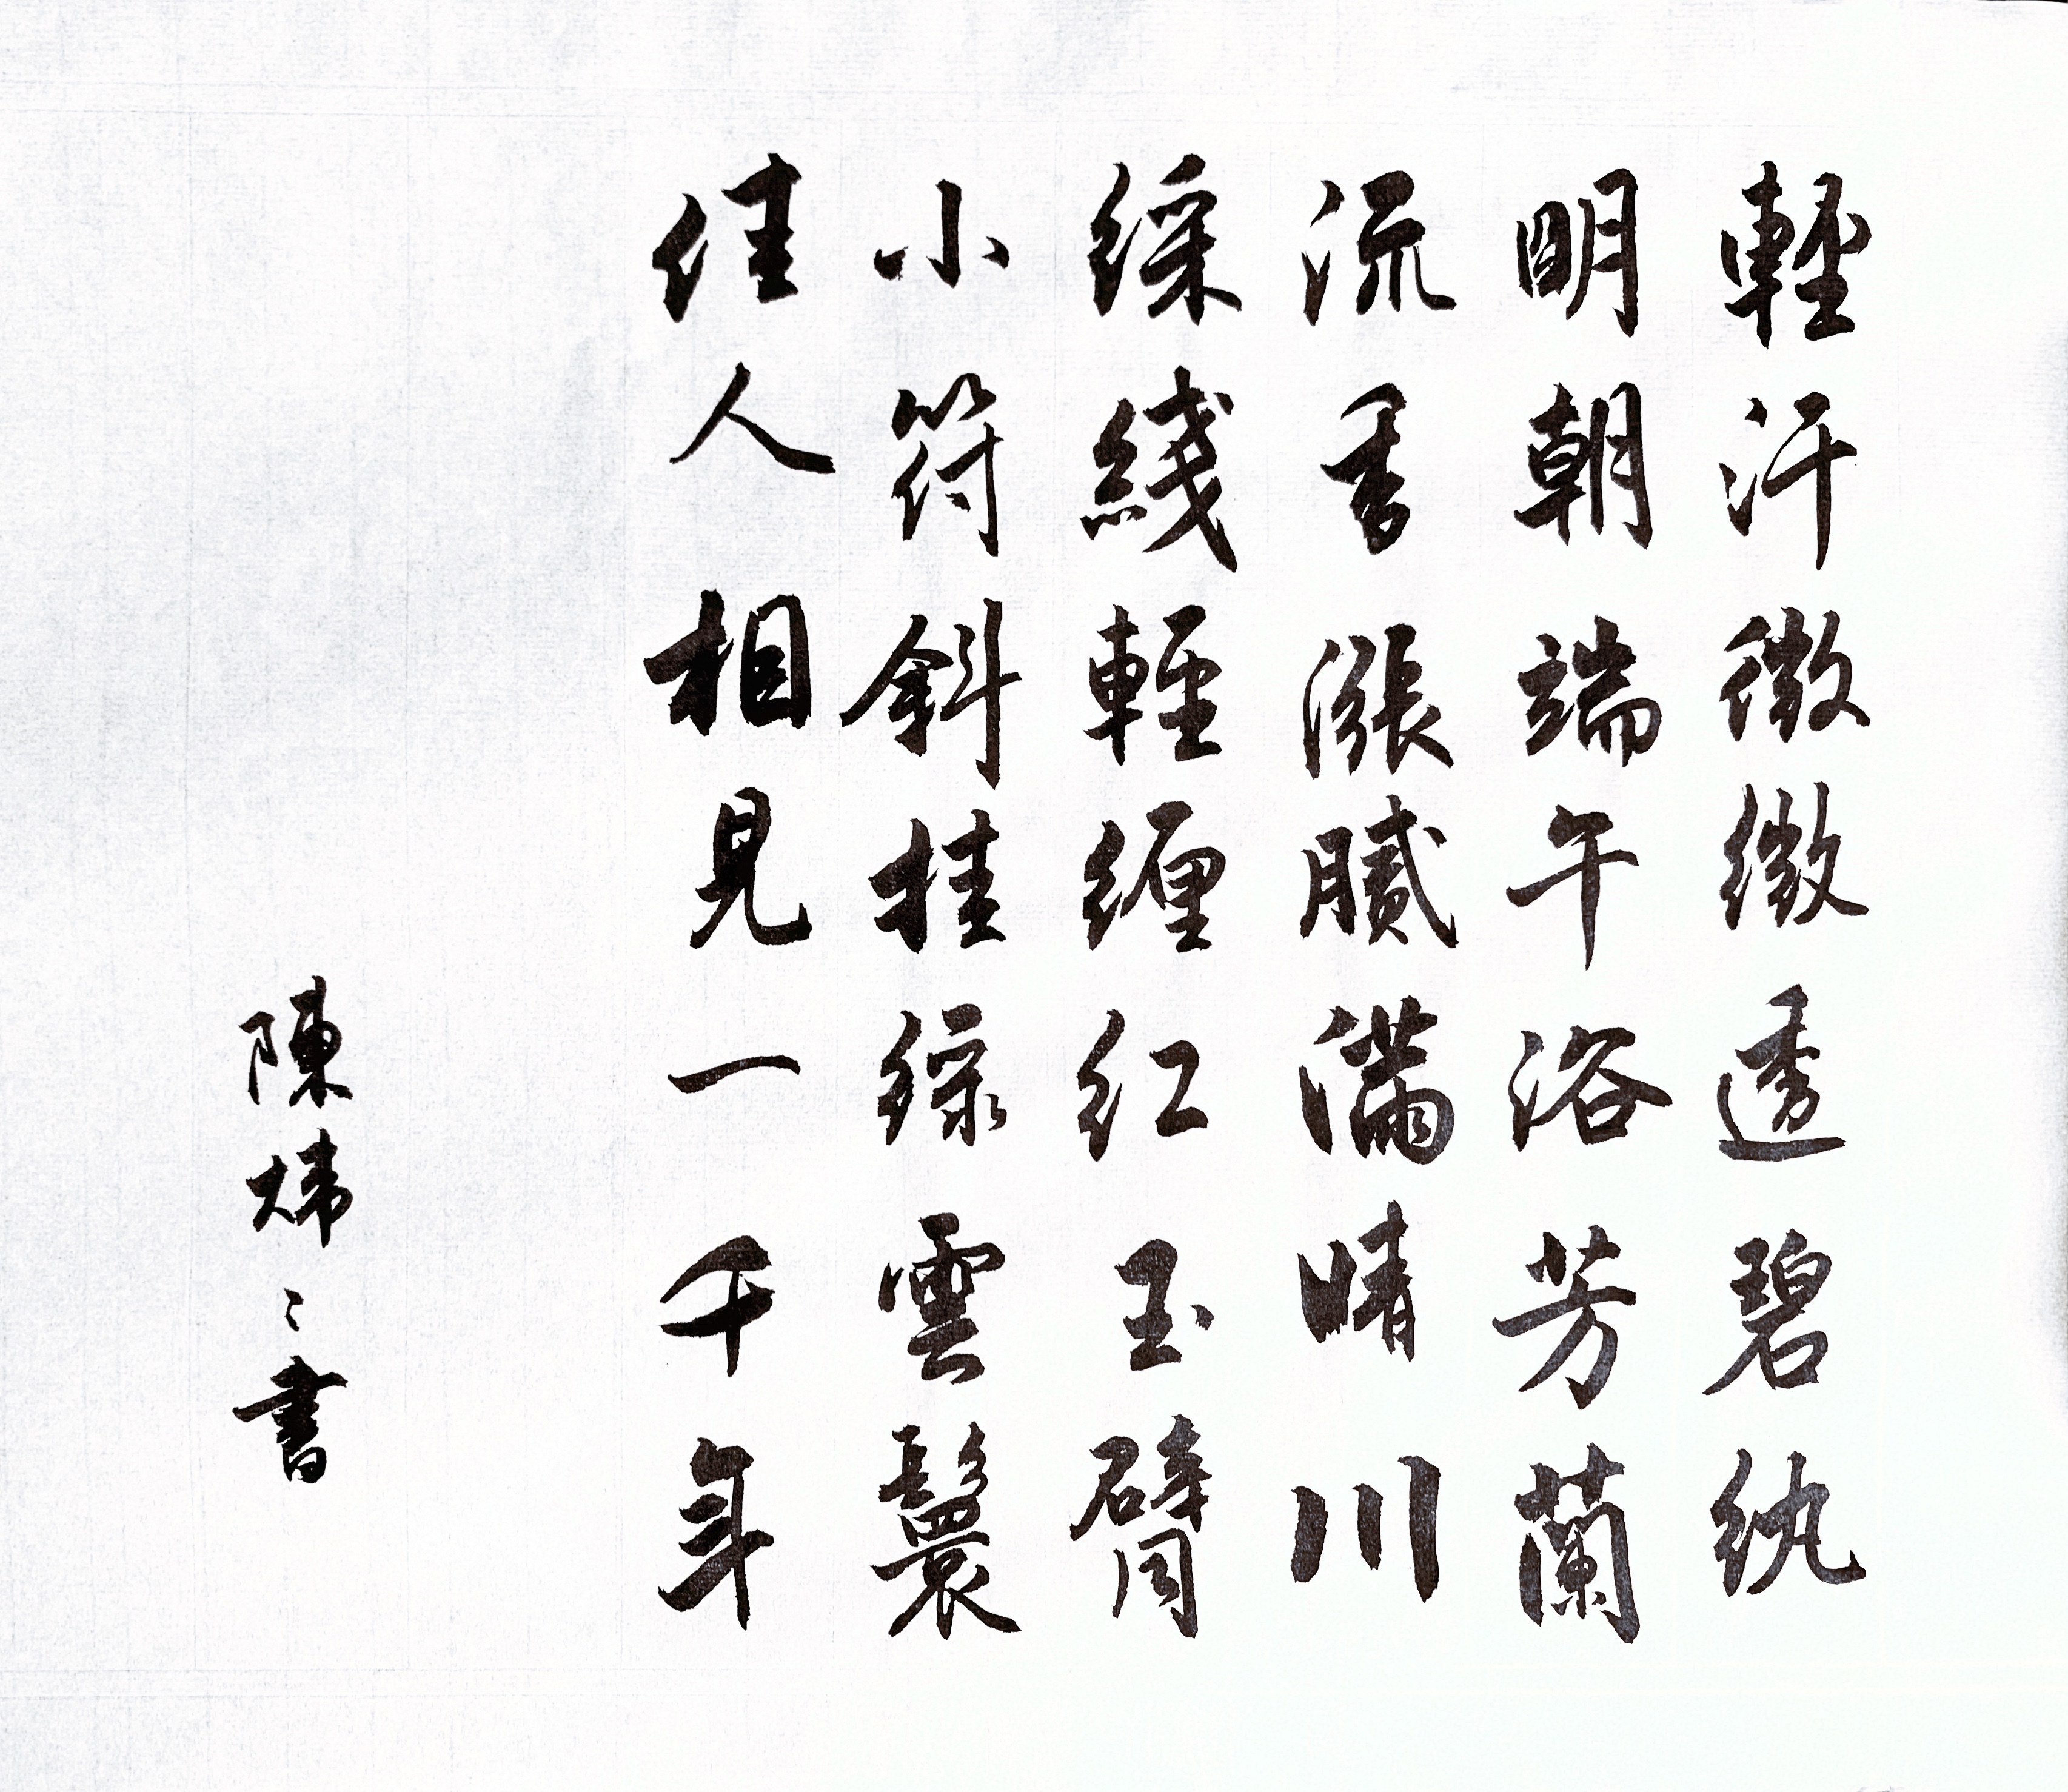 輕汗微微透碧紈
明朝端午浴芳蘭
流香漲膩滿晴川
綵綫輕纏紅玉臂
小符斜挂緑雲鬟
佳人相見一千年
陳煒〻書